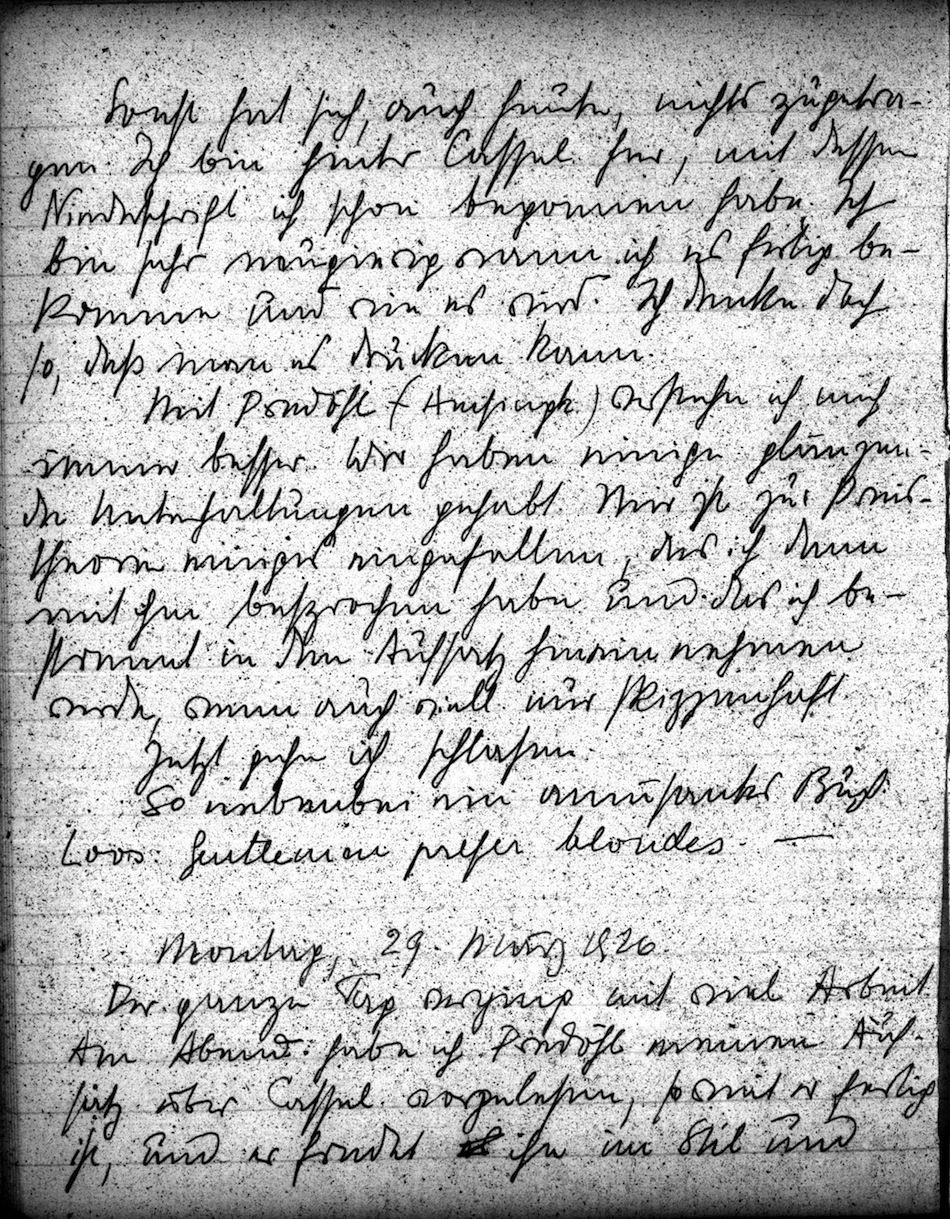 Sonst hat sich, auch heute, nichts zugetra-
gen. Ich bin hinter Cassel her, mit dessen
Niederschrift ich schon begonnen habe. Ich
bin sehr neugierig wann ich es fertig be-
komme und wie es wird. Ich denke doch
so, daß man es drucken kann.
Mit Predöhl ( ) verstehe ich mich
immer besser. Wir haben einige glänzen-
de Unterhaltungen gehabt. Mir ist zur Preis-
theorie einiges eingefallen, das ich dann
mit ihm besprochen habe und das ich be-
stimmt in den Aufsatz hinein nehmen
werde, wenn auch viell. nur skizzenhaft.
Jetzt gehe ich schlafen.
So nebenbei ein amüsantes Buch:
Loos: Gentlemen prefer blondes. —
Montag, 29. März 1926
Der ganze Tag verging mit viel Arbeit.
Am Abend habe ich Predöhl meinen Auf-
satz über Cassel vorgelesen, soweit er fertig
ist, und er findet ihn im Stil und